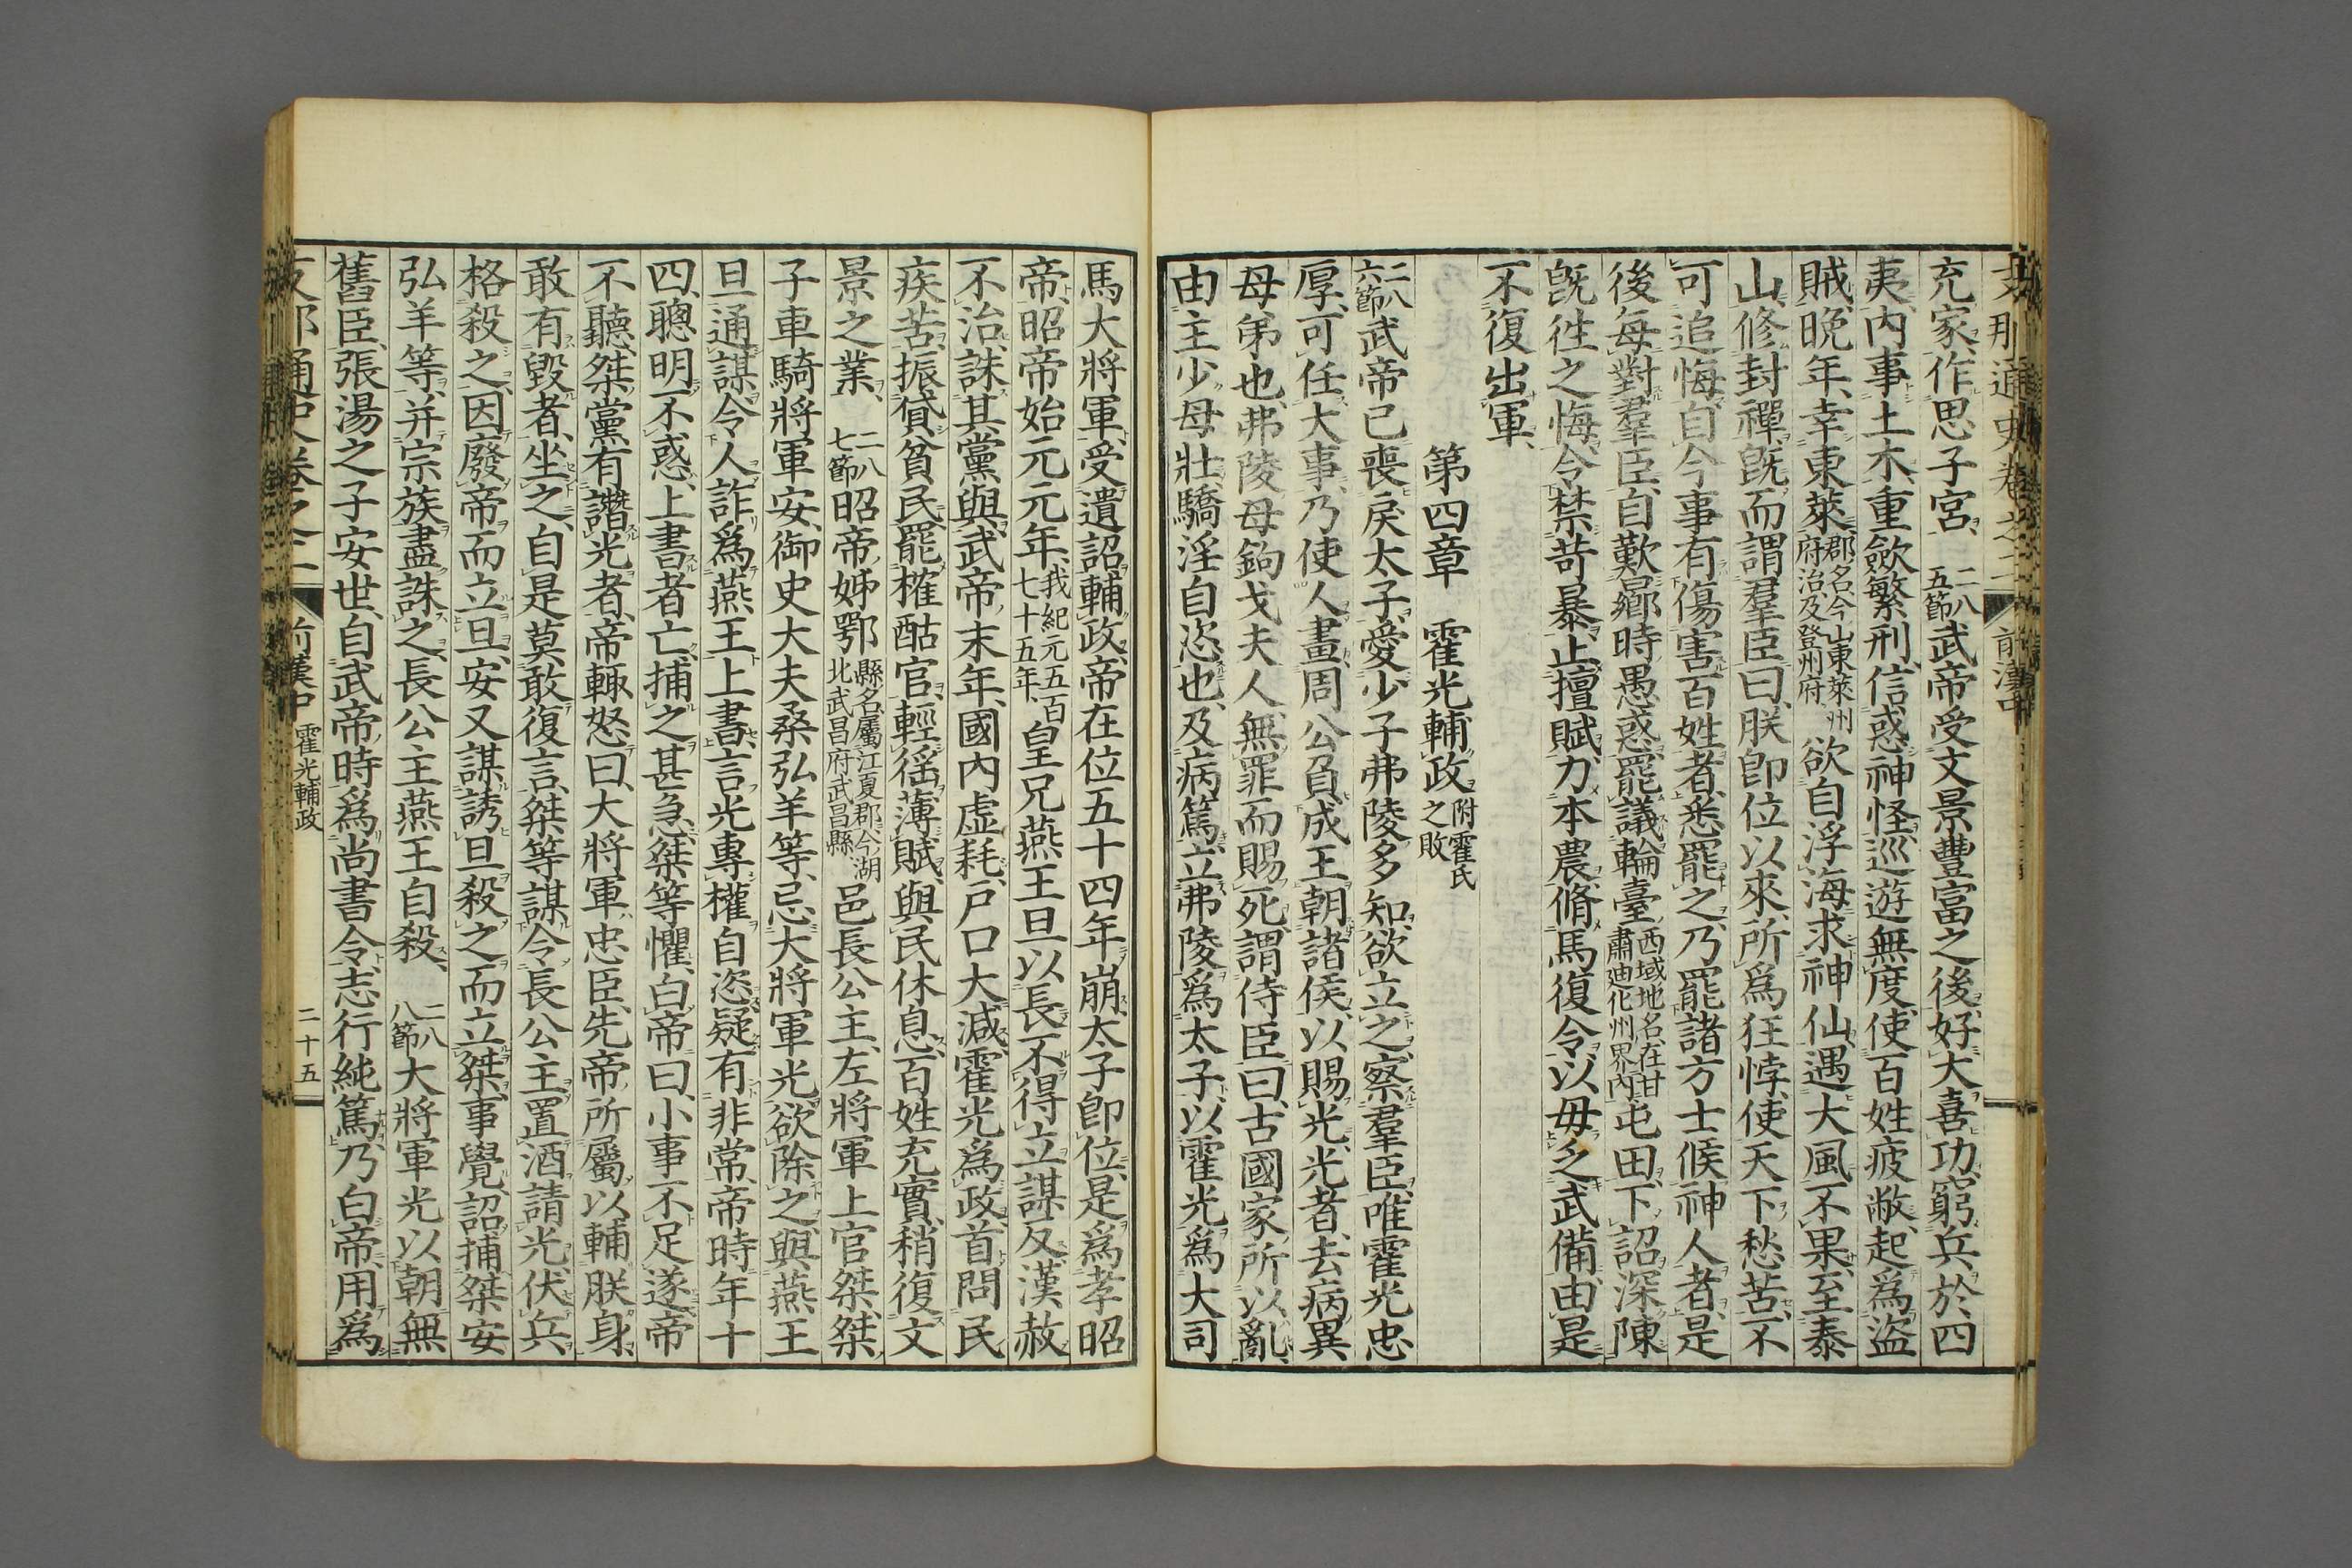 支那通史卷之二 前漢中
充家、作思子宮、 二八五節 武帝受文景豐富之後、好大喜功、窮兵於四
夷、內事土木、重斂繁刑、信惑神怪、巡遊無度、使百姓疲敝、起爲盜
賊、晚年、幸東萊、郡名、今山東萊州府治、及登州府、欲自浮海求神仙、遇大風、不果、至泰
山、修封禪、旣而謂羣臣曰、朕卽位以來、所爲狂悖、使天下愁苦、不
可追悔、自今事有傷害百姓者、悉罷之、乃罷諸方士候神人者、是
後每對羣臣、自歎曏時愚惑、罷議輪臺西域地名、在甘肅廸化州界內、屯田、下詔深陳
旣徃之悔、令禁苛暴、止擅賦、力本農、脩馬復令、以毋乏武備、由是
不復出軍、
第四章 霍光輔政 附霍氏之敗
二八六節 武帝已喪戾太子、愛少子弗陵多知、欲立之、察羣臣、唯霍光忠
厚、可任大事、乃使人畫周公負成王朝諸侯、以賜光、光者、去病異
母弟也、弗陵母鉤戈夫人、無罪而賜死、謂侍臣曰、古國家所以亂、
由主少母壯、驕淫自恣也、及病篤、立弗陵爲太子、以霍光爲大司
馬大將軍、受遺詔輔政、帝在位五十四年崩、太子卽位、是爲孝昭
帝、昭帝始元元年、我紀元五百七十五年、皇兄燕王旦、以長不得立謀反、漢赦
不治、誅其黨與、武帝末年、國內虛耗、戶口大減、霍光爲政、首問民
疾苦、振貸貧民、罷榷酤官、輕徭薄賦、與民休息、百姓充實、稍復文
景之業、 二八七節 昭帝姊鄂縣名、屬江夏郡、今湖北武昌府武昌縣、邑長公主、左將軍上官桀、桀
子車騎將軍安、御史大夫桑弘羊等、忌大將軍光、欲除之、與燕王
旦通謀、令人詐爲燕王上書、言光專權自恣、疑有非常、帝時年十
四、聰明不惑、上書者亡、捕之甚急、桀等懼、白帝曰、小事不足遂、帝
不聽、桀黨有譖光者、帝輒怒曰、大將軍忠臣、先帝所屬以輔朕身、
敢有毀者、坐之、自是莫敢復言、桀等謀令長公主置酒請光、伏兵
格殺之、因廢帝而立旦、安又謀誘旦殺之而立桀、事覺、詔捕桀安
弘羊等、幷宗族盡誅之、長公主燕王自殺、 二八八節 大將軍光、以朝無
舊臣、張湯之子安世、自武帝時爲尚書令、志行純篤、乃白帝、用爲
支那通史卷之二 前漢中 霍光輔政 二十五